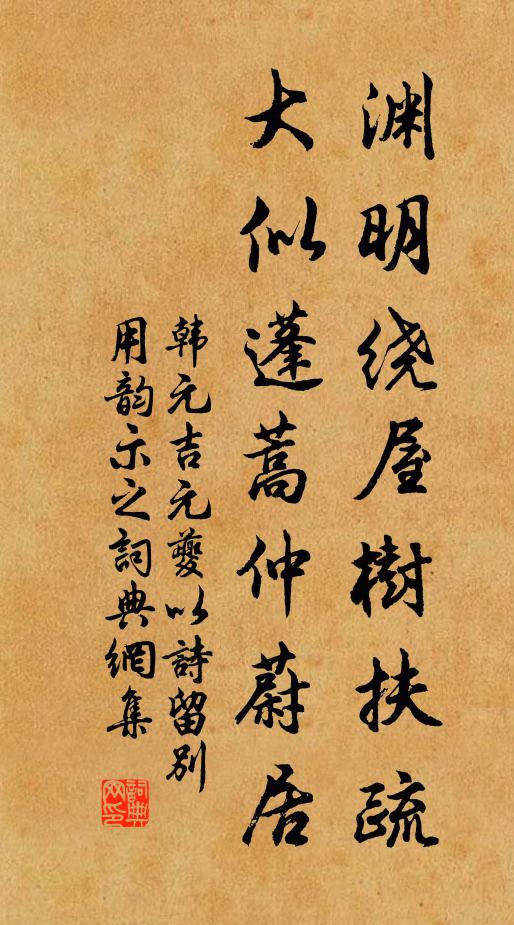 渊明绕屋樹扶疏
大似蓬蒿仲蔚居
韩元吉元夔以詩留别
用韵示之詞典網集
詞典
网印